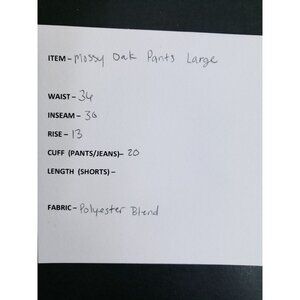 ITEM – Mossy Oak Pants Large
WAIST – 36
INSEAM – 30
RISE – 13
CUFF (PANTS/JEANS) – 20
LENGTH (SHORTS) –
FABRIC – Polyester Blend